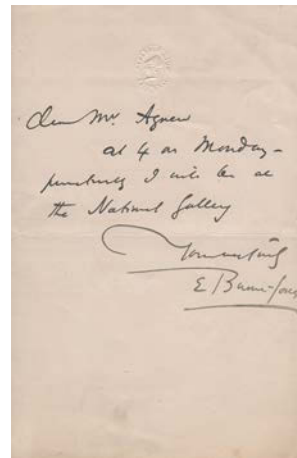 Dear Mr. Agnew
at 4 on Monday –
punctually I will be at
the National Gallery
Yours truly
E Burne-Jones